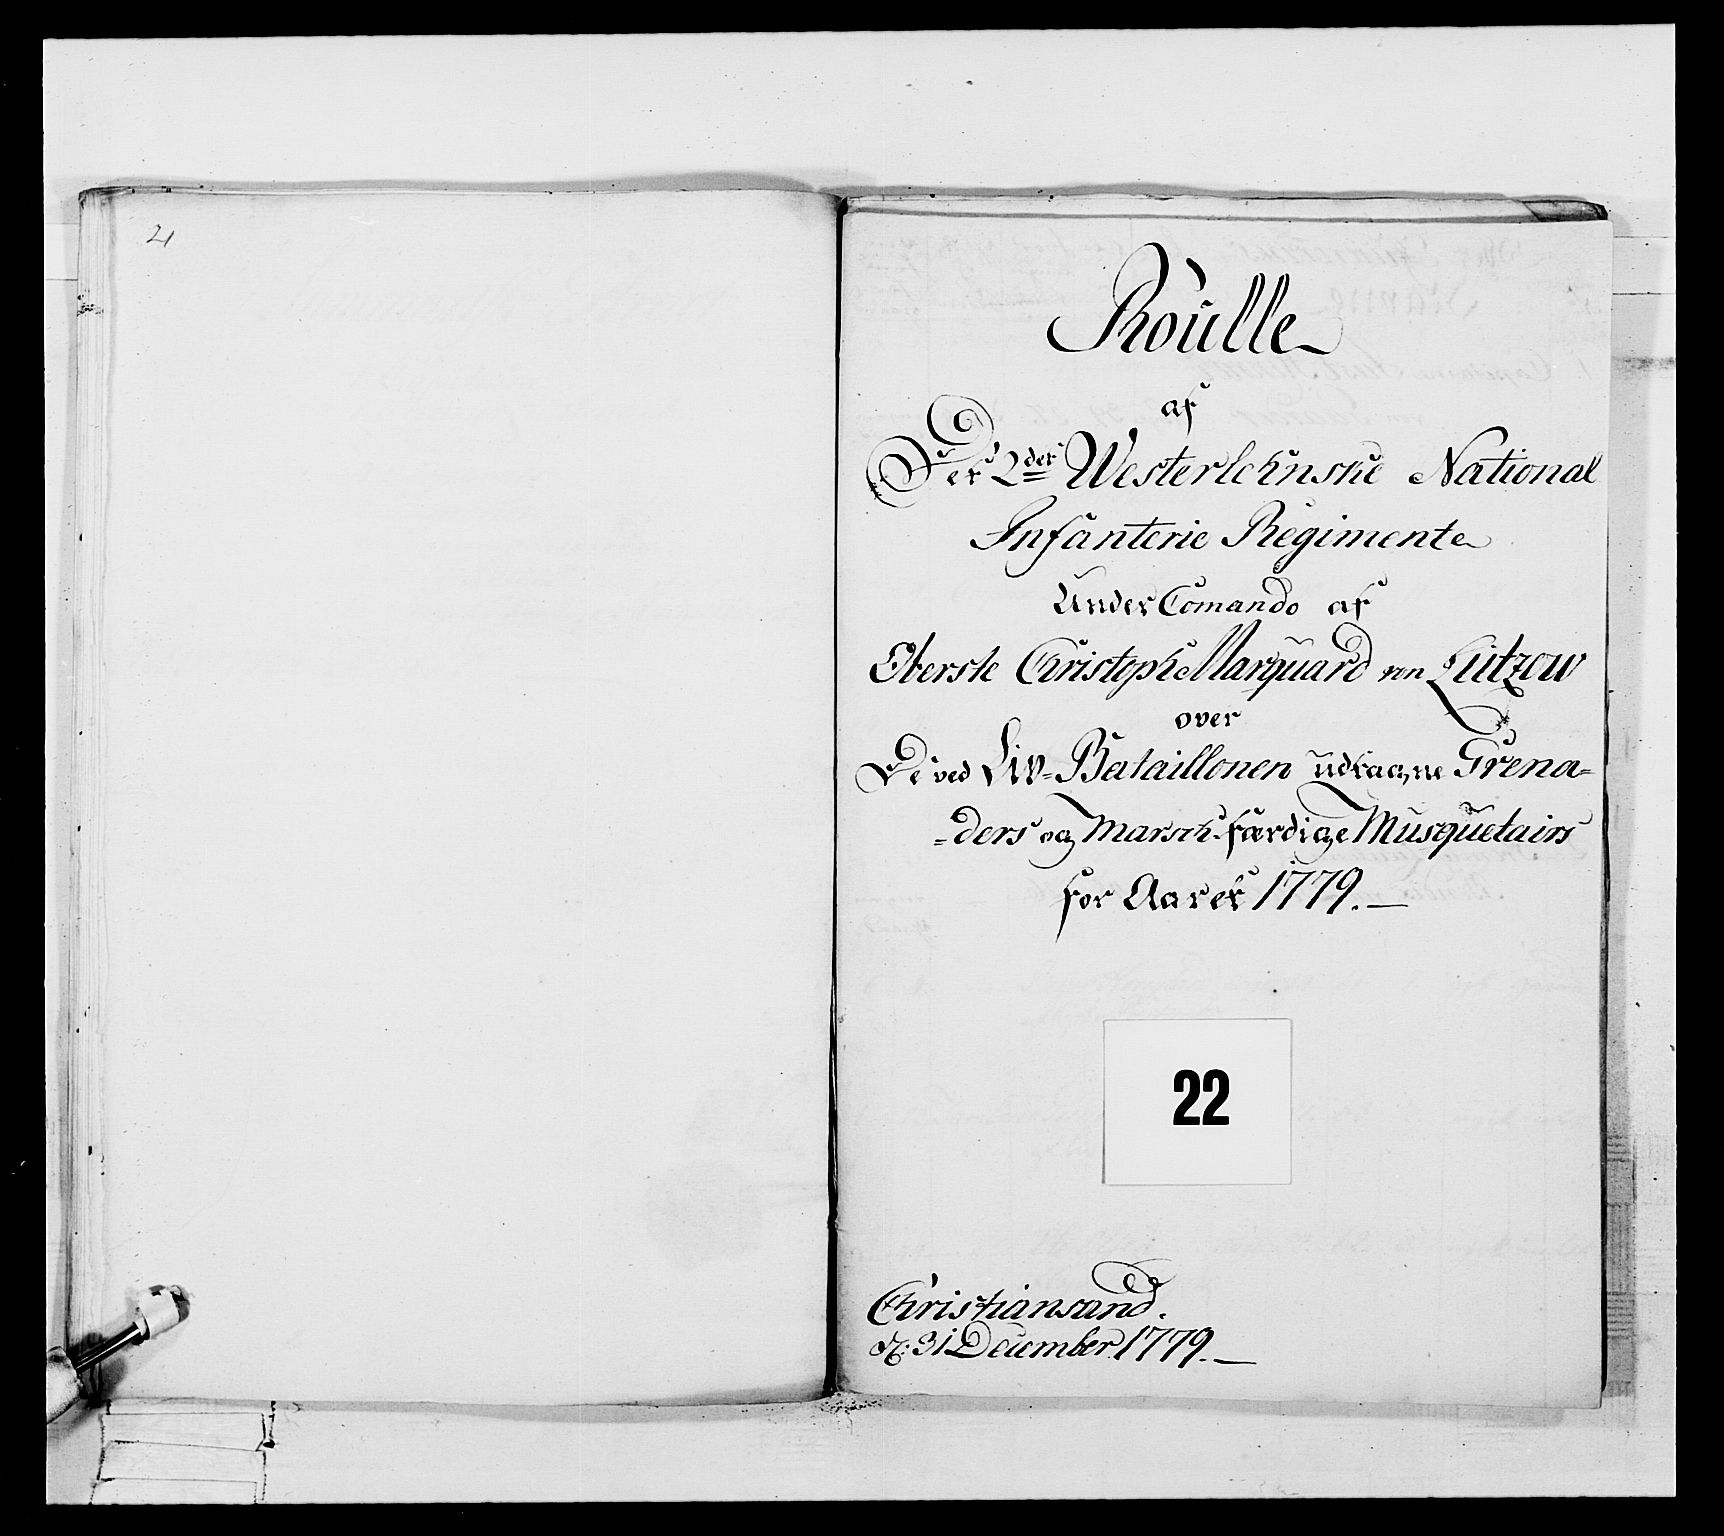 21
Roülle
af
Det 2der Westerlehnske National
Infanterie Regimente
Under Comando af
Oberste Christoph Marquard von Lützow
over
De ved Liv-Bataillonen üdtagne Grena=
=ders og Marsch-færdige Musquetairs
for Aaret 1779.
22
Christiansand.
d: 31 December 1779.